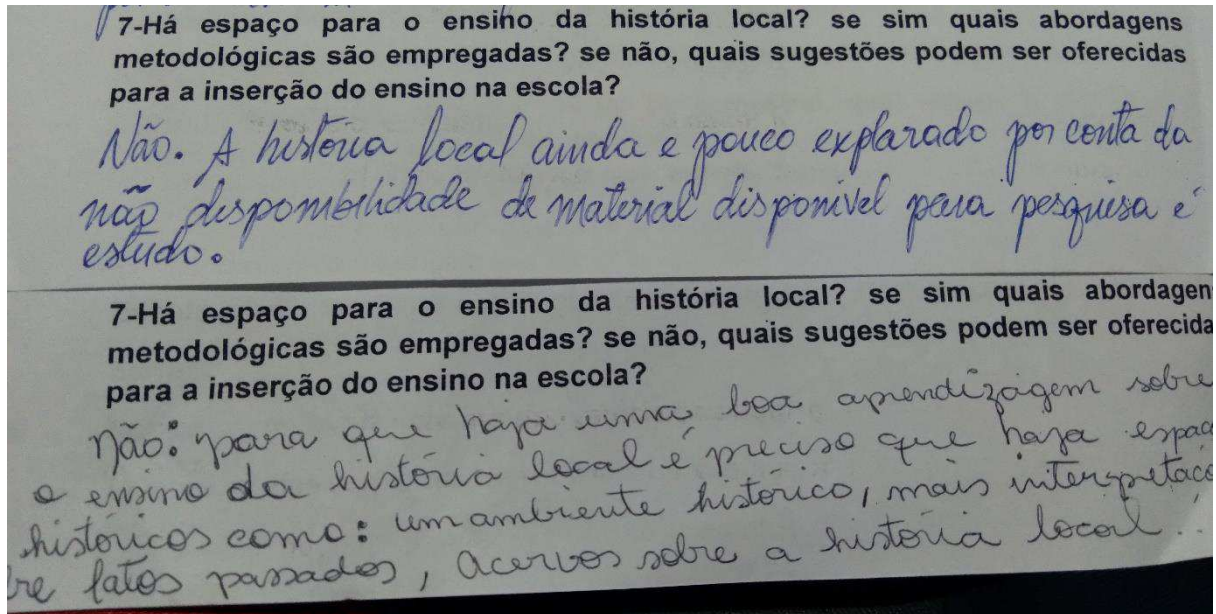 7-Há espaço para o ensino da história local? se sim quais abordagens
metodológicas são empregadas? se não, quais sugestões podem ser oferecidas
para a inserção do ensino na escola?
Não. A história local ainda e pouco explarado por conta da
não disponibilidade de material disponível para pesquisa é
estudo.
7-Há espaço para o ensino da história local? se sim quais abordagen
metodológicas são empregadas? se não, quais sugestões podem ser oferecida
para a inserção do ensino na escola?
não: para que haja uma boa aprendizagem sobre
o ensino da história local é preciso que haja espaç
históricos como: um ambiente histórico, mais interpretaçõ
re fatos passados, acervos sobre a história local..